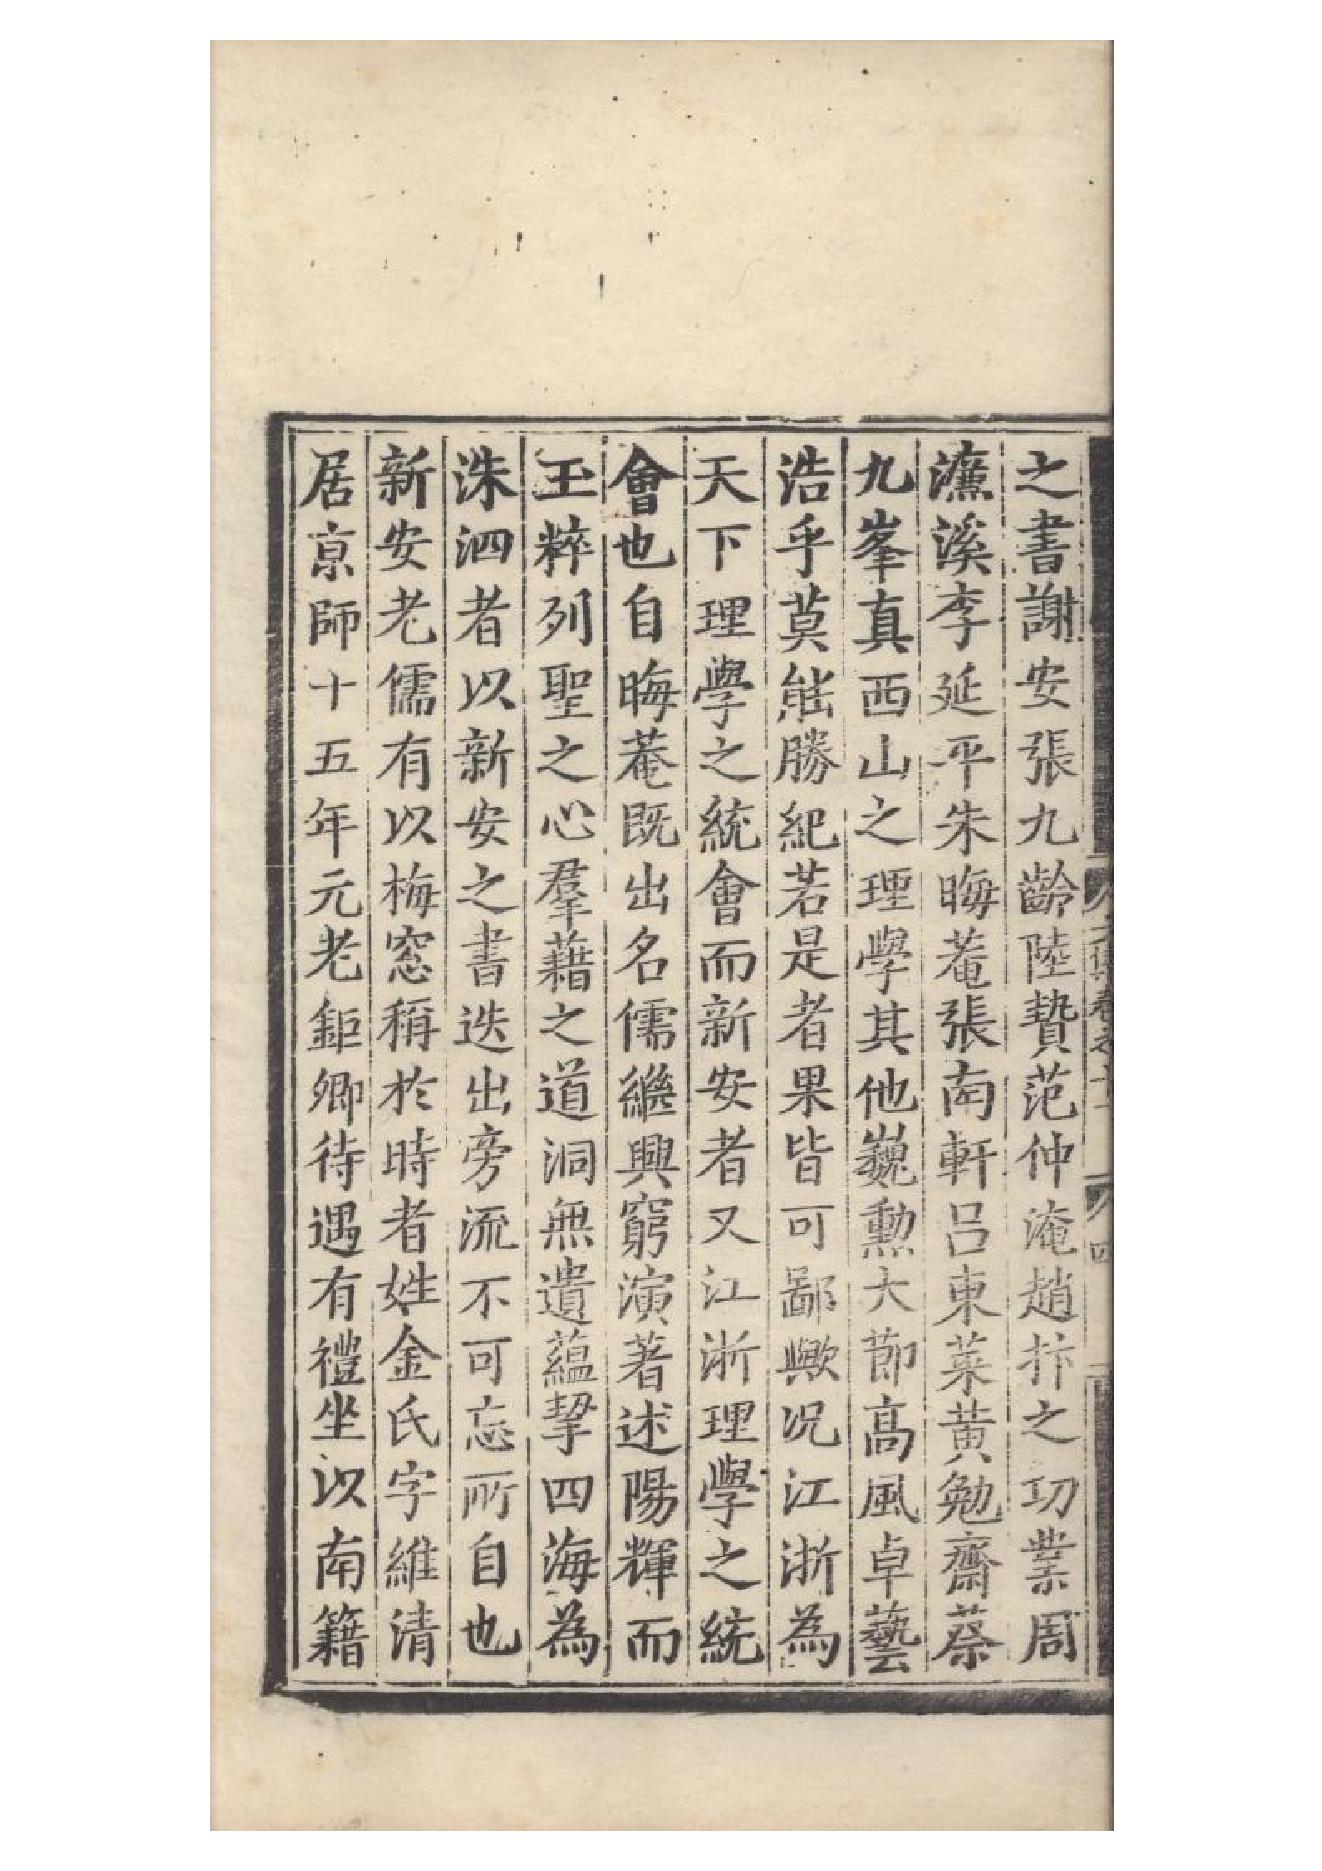 之書謝安張九齡陸贄范仲淹趙抃之功業周
濂溪李延平朱晦菴張南軒呂東萊黃勉齋蔡
九峯真西山之理學其他巍勳大節高風卓藝
浩乎莫能勝紀若是者果皆可鄙歟况江浙為
天下理學之統會而新安者又江浙理學之統
會也自晦菴既出名儒繼興窮演著述陽輝而
玉粹列聖之心羣藉之道洞無遺蘊挈四海為
洙泗者以新安之書迭出旁流不可忘所自也
新安老儒有以梅窓稱於時者姓金氏字維清
居京師十五年元老鉅卿待遇有禮坐以南籍